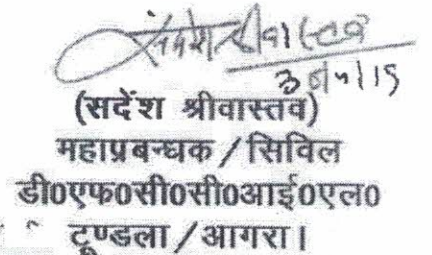 (सदेंश श्रीवास्तव)
महाप्रबन्धक / सिविल
डी0एफ0सी0सी0आई0एल0
टूण्डला / आगरा।